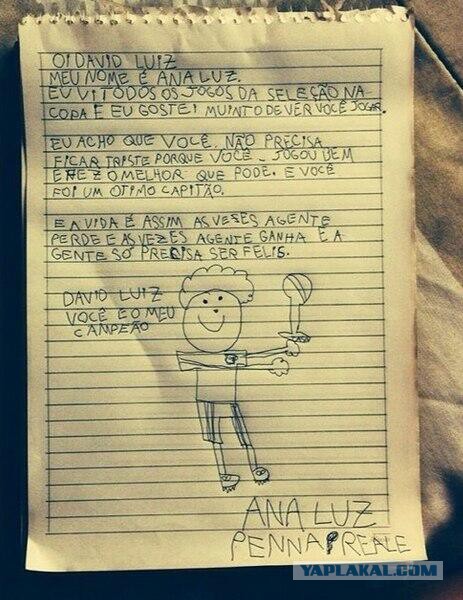 OI DAVID LUIZ
MEU NOME É ANA LUZ.
EU VI TODOS OS JOGOS DA SELEÇÃO NA
COPA E EU GOSTEI MUINTO DE VER VOCÊ JOGAR.
EU ACHO QUE VOCÊ NÃO PRECISA
FICAR TRISTE PORQUE VOCÊ JOGOU BEM
E FEZ O MELHOR QUE PODE. E VOCÊ
FOI UM OTIMO CAPITÃO.
E A VIDA É ASSIM AS VESES AGENTE
PERDE E AS VEZES AGENTE GANHA E A
GENTE SÓ PRECISA SER FELIS.
DAVID LUIZ
VOCÊ E O MEU
CAMPEÃO
ANA LUZ
PENNA REALE
YAPLAKAL.COM